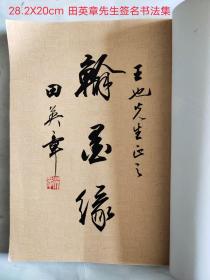 28.2X20cm 田英章先生签名书法集
王也先生正之
翰墨缘
田英章